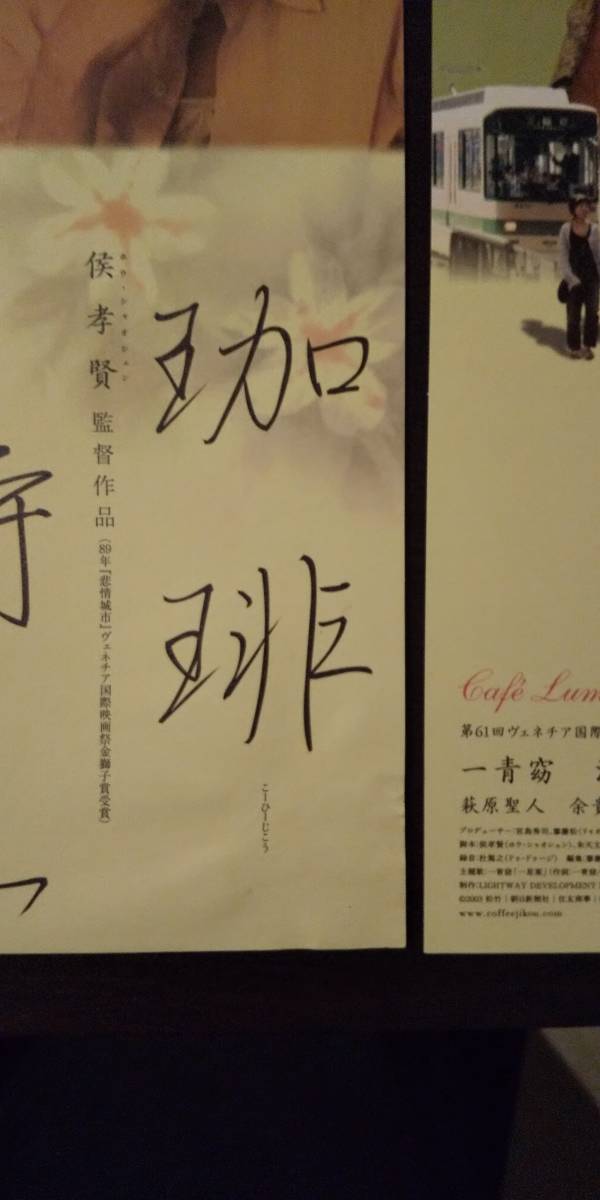 珈琲
こーひーじこう
ホウ・シャオシェン
侯孝賢監督作品(89年『悲情城市』ヴェネチア国際映画祭金獅子賞受賞)
時
Café Lum
第61回ヴェネチア国際
一青窈
萩原聖人 余貴
プロデューサー:宮島秀司、
脚本:侯孝賢(ホウ・シャオシェン)、朱天文
録音:杜篤之(ドゥ・ドゥージ) 編集:
主題歌:一青窈「一思案」(作詞:一青窈
制作:LIGHTWAY DEVELOPMENT
©2003 松竹|朝日新聞社|住友商事|
www.coffeejikou.com